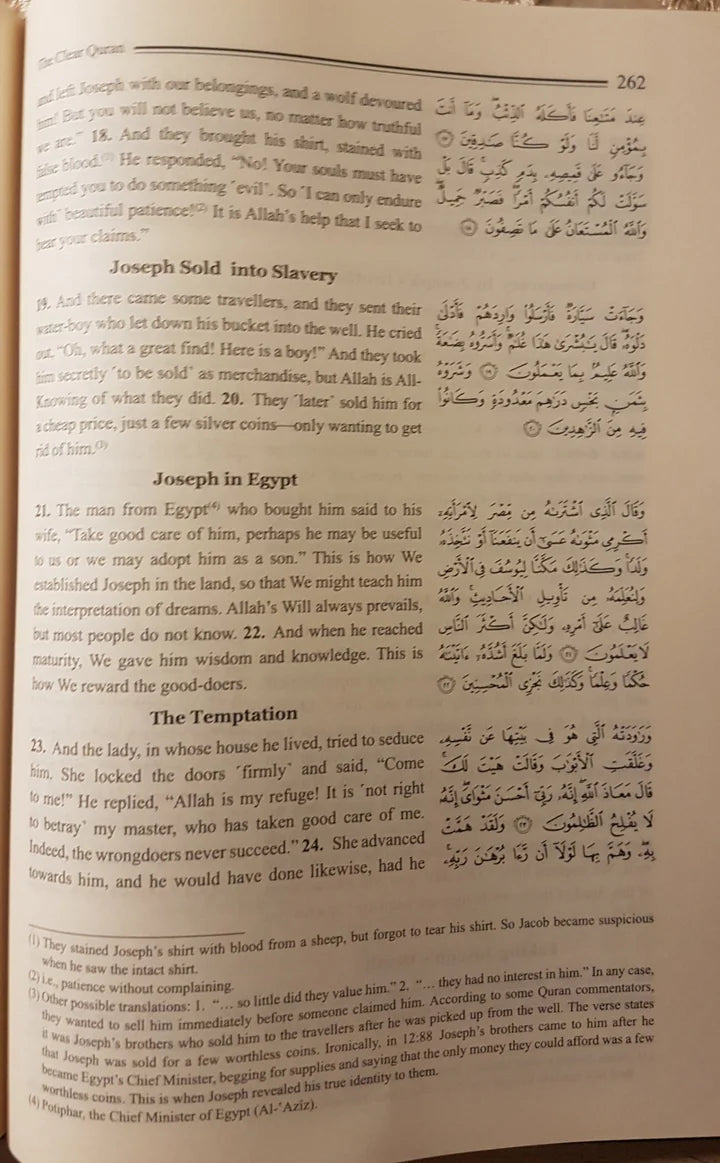 The Clear Quran
262
and left Joseph with our belongings, and a wolf devoured
him! But you will not believe us, no matter how truthful
we are.” 18. And they brought his shirt, stained with
false blood.(1) He responded, “No! Your souls must have
tempted you to do something ˹evil˺. So ˹I can only endure
with˺ beautiful patience!(2) It is Allah’s help that I seek to
bear your claims.”
عِندَ مَتَٰعِنَا فَأَكَلَهُ ٱلذِّئۡبُۖ وَمَآ أَنتَ
بِمُؤۡمِنٖ لَّنَا وَلَوۡ كُنَّا صَٰدِقِينَ ١٧
وَجَآءُو عَلَىٰ قَمِيصِهِۦ بِدَمٖ كَذِبٖۚ قَالَ بَلۡ
سَوَّلَتۡ لَكُمۡ أَنفُسُكُمۡ أَمۡرٗاۖ فَصَبۡرٞ جَمِيلٞۖ
وَٱللَّهُ ٱلۡمُسۡتَعَانُ عَلَىٰ مَا تَصِفُونَ ١٨
Joseph Sold into Slavery
19. And there came some travellers, and they sent their
water-boy who let down his bucket into the well. He cried
out, “Oh, what a great find! Here is a boy!” And they took
him secretly ˹to be sold˺ as merchandise, but Allah is All-
Knowing of what they did. 20. They ˹later˺ sold him for
a cheap price, just a few silver coins—only wanting to get
rid of him.(3)
وَجَآءَتۡ سَيَّارَةٞ فَأَرۡسَلُواْ وَارِدَهُمۡ فَأَدۡلَىٰ
دَلۡوَهُۥۖ قَالَ يَٰبُشۡرَىٰ هَٰذَا غُلَٰمٞۚ وَأَسَرُّوهُ بِضَٰعَةٗۚ
وَٱللَّهُ عَلِيمُۢ بِمَا يَعۡمَلُونَ ١٩ وَشَرَوۡهُ
بِثَمَنِۭ بَخۡسٖ دَرَٰهِمَ مَعۡدُودَةٖ وَكَانُواْ
فِيهِ مِنَ ٱلزَّٰهِدِينَ ٢٠
Joseph in Egypt
21. The man from Egypt(4) who bought him said to his
wife, “Take good care of him, perhaps he may be useful
to us or we may adopt him as a son.” This is how We
established Joseph in the land, so that We might teach him
the interpretation of dreams. Allah’s Will always prevails,
but most people do not know. 22. And when he reached
maturity, We gave him wisdom and knowledge. This is
how We reward the good-doers.
وَقَالَ ٱلَّذِي ٱشۡتَرَىٰهُ مِن مِّصۡرَ لِٱمۡرَأَتِهِۦٓ
أَكۡرِمِي مَثۡوَىٰهُ عَسَىٰٓ أَن يَنفَعَنَآ أَوۡ نَتَّخِذَهُۥ
وَلَدٗاۚ وَكَذَٰلِكَ مَكَّنَّا لِيُوسُفَ فِي ٱلۡأَرۡضِ
وَلِنُعَلِّمَهُۥ مِن تَأۡوِيلِ ٱلۡأَحَادِيثِۚ وَٱللَّهُ
غَالِبٌ عَلَىٰٓ أَمۡرِهِۦ وَلَٰكِنَّ أَكۡثَرَ ٱلنَّاسِ
لَا يَعۡلَمُونَ ٢١ وَلَمَّا بَلَغَ أَشُدَّهُۥٓ ءَاتَيۡنَٰهُ
حُكۡمٗا وَعِلۡمٗاۚ وَكَذَٰلِكَ نَجۡزِي ٱلۡمُحۡسِنِينَ ٢٢
The Temptation
23. And the lady, in whose house he lived, tried to seduce
him. She locked the doors ˹firmly˺ and said, “Come
to me!” He replied, “Allah is my refuge! It is ˹not right
to betray˺ my master, who has taken good care of me.
Indeed, the wrongdoers never succeed.” 24. She advanced
towards him, and he would have done likewise, had he
وَرَٰوَدَتۡهُ ٱلَّتِي هُوَ فِي بَيۡتِهَا عَن نَّفۡسِهِۦ
وَغَلَّقَتِ ٱلۡأَبۡوَٰبَ وَقَالَتۡ هَيۡتَ لَكَۚ
قَالَ مَعَاذَ ٱللَّهِۖ إِنَّهُۥ رَبِّيٓ أَحۡسَنَ مَثۡوَايَۖ إِنَّهُۥ
لَا يُفۡلِحُ ٱلظَّٰلِمُونَ ٢٣ وَلَقَدۡ هَمَّتۡ
بِهِۦۖ وَهَمَّ بِهَا لَوۡلَآ أَن رَّءَا بُرۡهَٰنَ رَبِّهِۦۚ
(1) They stained Joseph’s shirt with blood from a sheep, but forgot to tear his shirt. So Jacob became suspicious
when he saw the intact shirt.
(2) i.e., patience without complaining.
(3) Other possible translations: 1. “… so little did they value him.” 2. “… they had no interest in him.” In any case,
they wanted to sell him immediately before someone claimed him. According to some Quran commentators,
it was Joseph’s brothers who sold him to the travellers after he was picked up from the well. The verse states
that Joseph was sold for a few worthless coins. Ironically, in 12:88 Joseph’s brothers came to him after he
became Egypt’s Chief Minister, begging for supplies and saying that the only money they could afford was a few
worthless coins. This is when Joseph revealed his true identity to them.
(4) Potiphar, the Chief Minister of Egypt (Al-’Azîz).